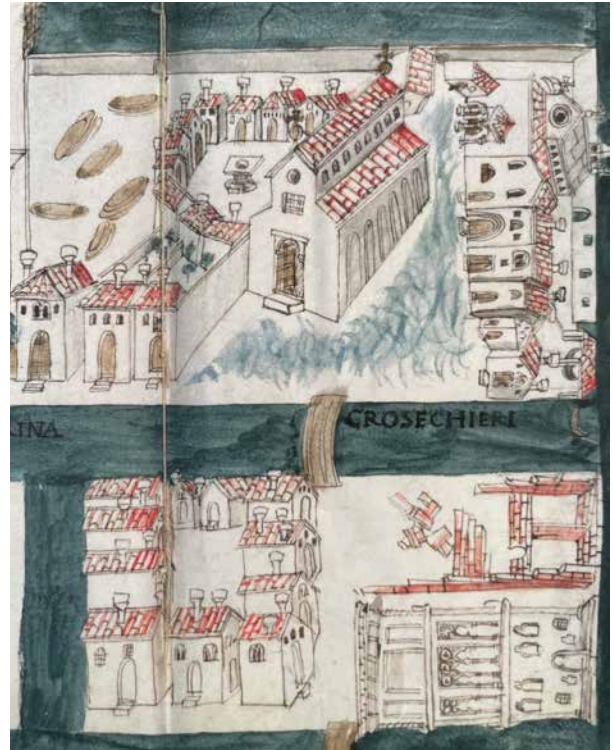 INA
CROSECHIERI